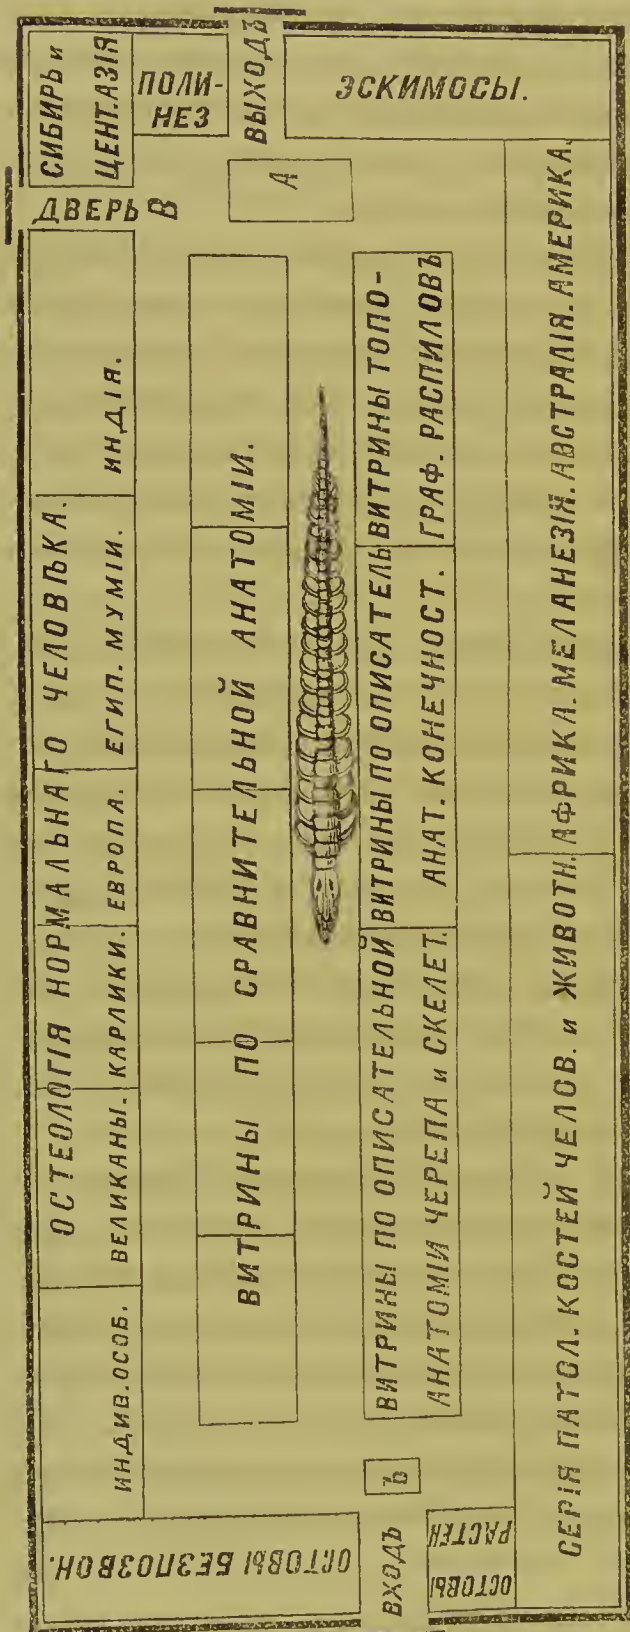 СИБИРЬ и
ЦЕНТ. АЗІЯ
ПОЛИ-
НЕЗ
ВЫХОДЪ
ЭСКИМОСЫ.
ДВЕРЬ В
А
ОСТЕОЛОГІЯ НОРМАЛЬНАГО ЧЕЛОВѢКА.
ИНДИВ. ОСОБ.
ВЕЛИКАНЫ.
КАРЛИКИ.
ЕВРОПА.
ЕГИП. МУМІИ.
ИНДІЯ.
ВИТРИНЫ ПО СРАВНИТЕЛЬНОЙ АНАТОМІИ.
ВИТРИНЫ ПО ОПИСАТЕЛЬНОЙ
АНАТОМІИ ЧЕРЕПА и СКЕЛЕТ.
ВИТРИНЫ ПО ОПИСАТЕЛЬ
АНАТ. КОНЕЧНОСТ.
ВИТРИНЫ ТОПО-
ГРАФ. РАСПИЛОВЪ
СЕРІЯ ПАТОЛ. КОСТЕЙ ЧЕЛОВ. и ЖИВОТН.
АФРИКА. МЕЛАНЕЗІЯ. АВСТРАЛІЯ. АМЕРИКА.
ОСТОВЫ БЕЗПОЗВОН.
ВХОДЪ
Ъ
ОСТОВЫ
РАСТЕН